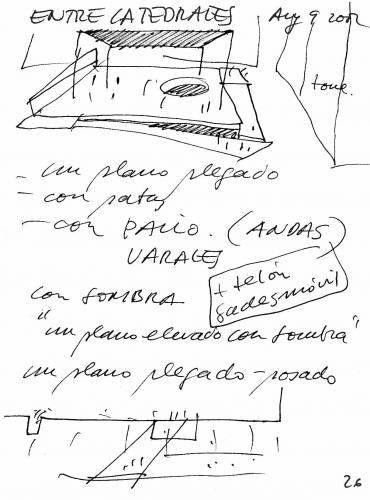 ENTRE CATEDRALES
Aug 9 2002
torre.
- un plano plegado
- con patas
- con PALIO. (ANDAS)
VARALES
con SOMBRA
+ telón
gadesmóvil
"un plano elevado con sombra"
un plano plegado-posado
26